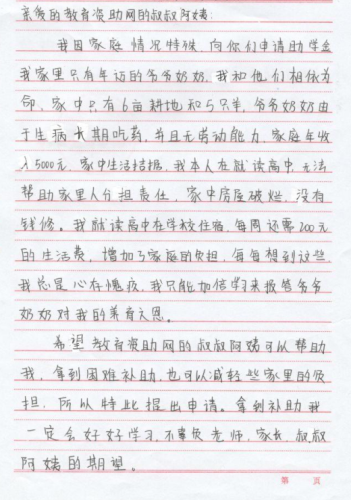 亲爱的教育资助网的叔叔阿姨:
我因家庭情况特殊,向你们申请助学金
我家里只有年迈的爷爷奶奶,我和他们相依为
命,家中只有6亩耕地和5只羊,爷爷奶奶由
于生病长期吃药,并且无劳动能力,家庭年收
入5000元,家中生活拮据,我本人在就读高中,无法
帮助家里人分担责任,家中房屋破烂,没有
钱修。我就读高中在学校住宿,每周还需200元
的生活费,增加了家庭的负担,每每想到这些
我总是心存愧疚,我只能加倍学习来报答爷爷
奶奶对我的养育之恩。
希望教育资助网的叔叔阿姨可以帮助
我,拿到困难补助,也可以减轻些家里的负
担,所以特此提出申请。拿到补助我
一定会好好学习,不辜负老师,家长,叔叔
阿姨的期望。
第 页